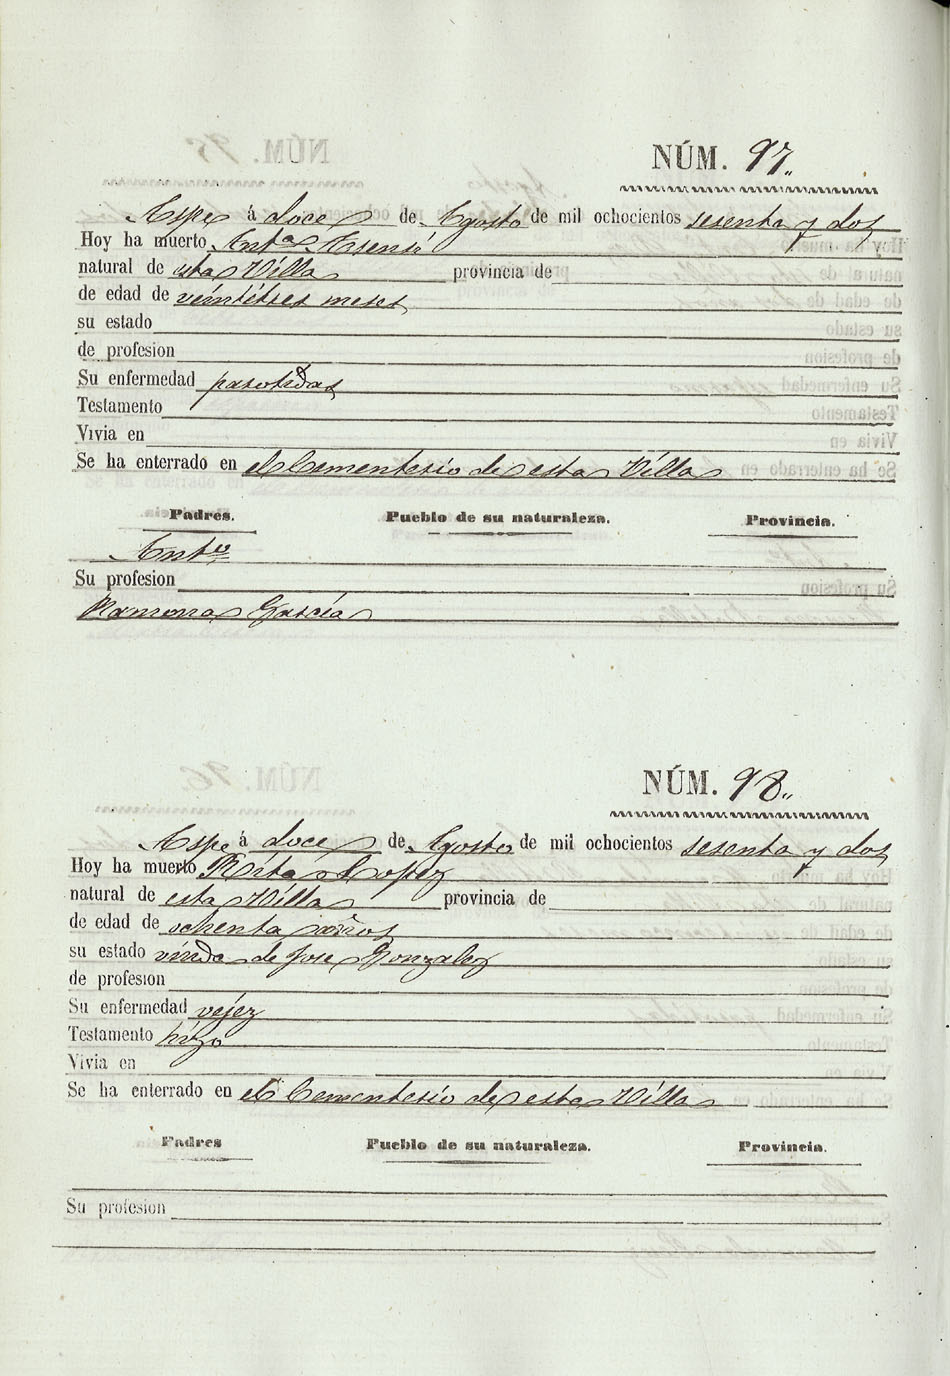 NÚM. 97.
Aspe á doce de Agosto de mil ochocientos sesenta y dos
Hoy ha muerto Ant.ª Asensi
natural de esta Villa provincia de
de edad de veintitres meses
su estado
de profesion
Su enfermedad parotidas
Testamento
Vivia en
Se ha enterrado en el Cementerio de esta Villa
Padres. Pueblo de su naturaleza. Provincia.
Ant.º
Su profesion
Ramona Garcia
NÚM. 98.
Aspe á doce de Agosto de mil ochocientos sesenta y dos
Hoy ha muerto Rita Lopez
natural de esta Villa provincia de
de edad de ochenta años
su estado viuda de Jose Gonzalez
de profesion
Su enfermedad vejez
Testamento hizo
Vivia en
Se ha enterrado en el Cementerio de esta Villa
Padres Pueblo de su naturaleza. Provincia.
Su profesion